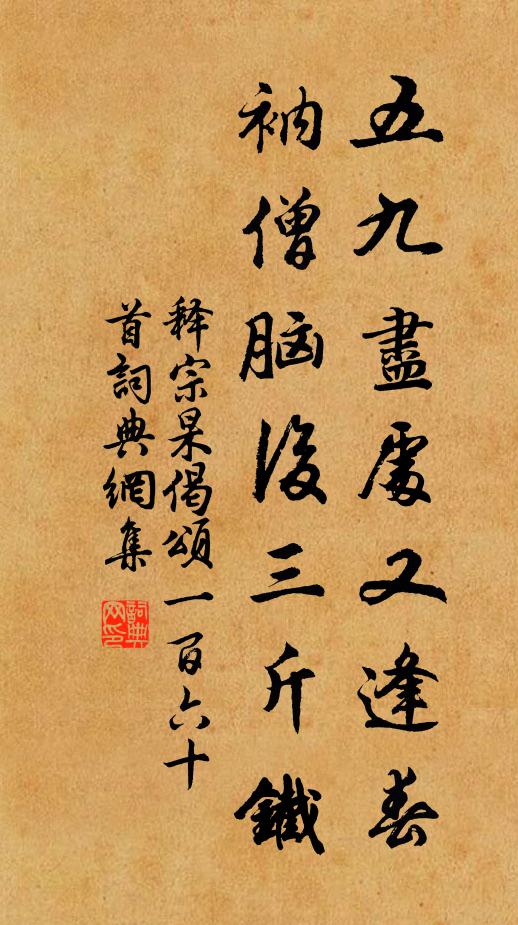 五九盡處又逢春
衲僧脑後三斤鐵
释宗杲偈頌一百六十
首詞典網集
詞典网印